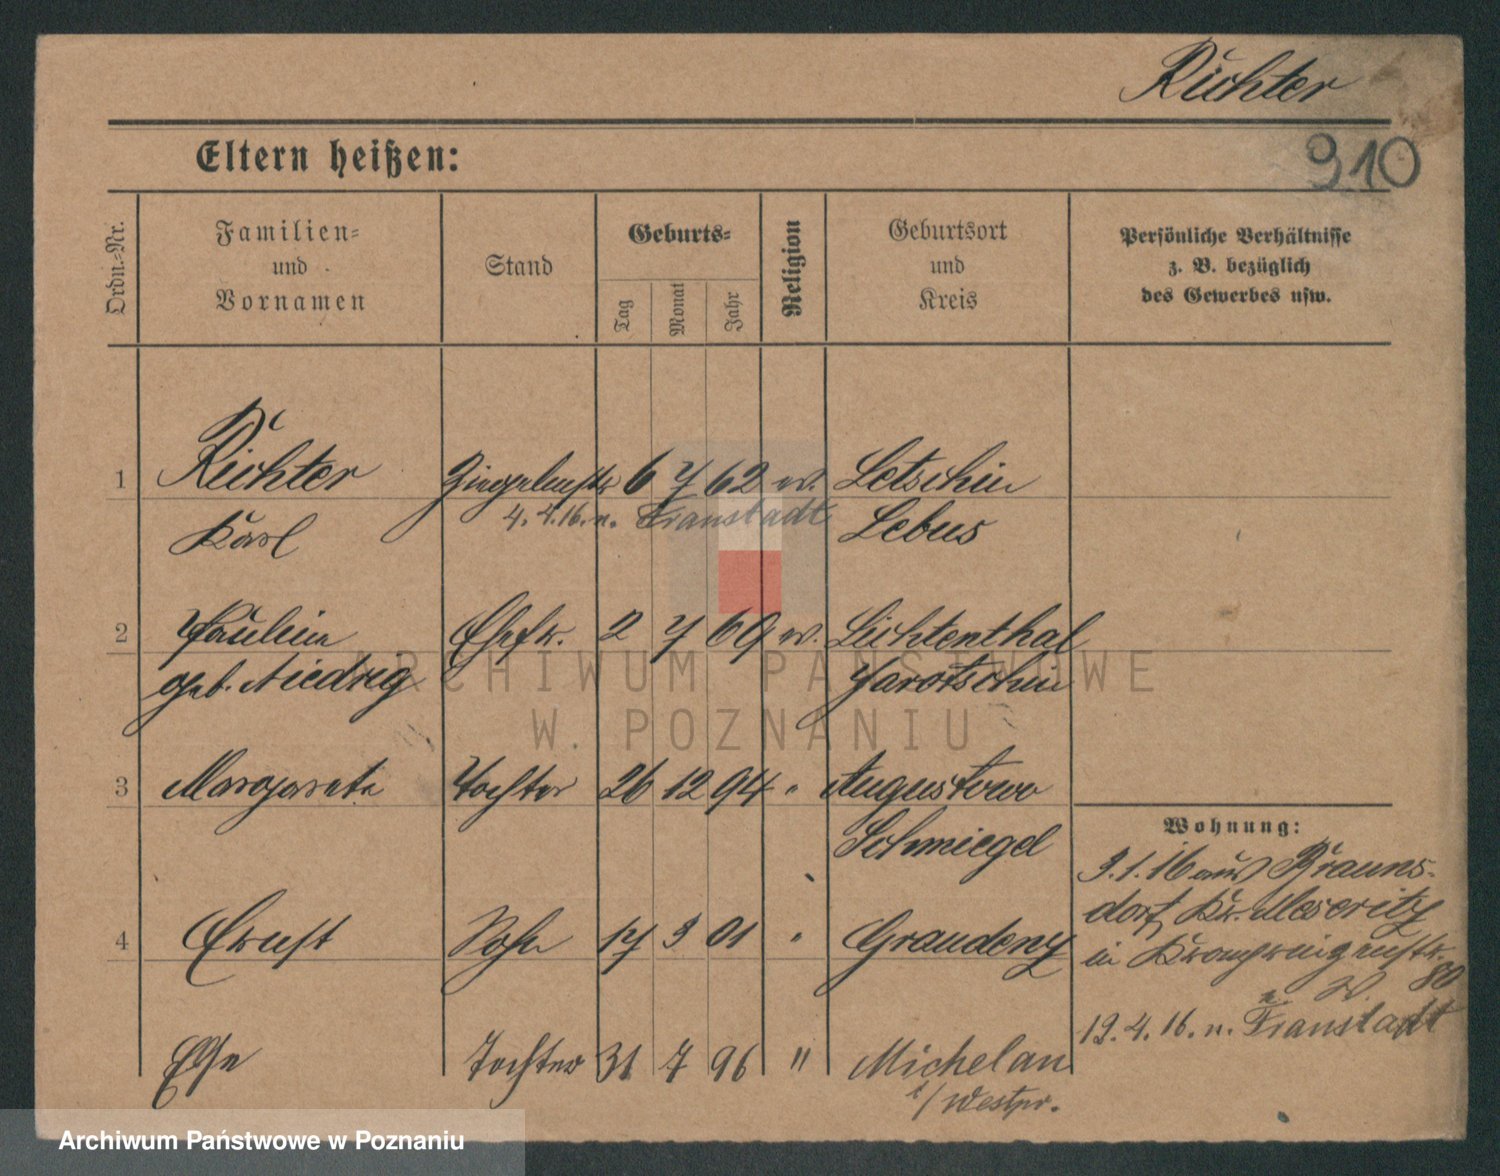 Richter
Eltern heißen:
910
Ordn.-Nr.
Familien-
und
Vornamen
Stand
Geburts-
Tag
Monat
Jahr
Religion
Geburtsort
und
Kreis
Persönliche Verhältnisse
z. B. bezüglich
des Gewerbes usw.
1 Richter 6 7 62 ev. Letschin
4.4.16. n. Fraustadt
Karl Lebus
2 Pauline Ehefr. 2 7 69 ev. Lichtenthal
geb. Niedrig Jarotschin
3 Margarete Tochter 26 12 94 " Augustowo
Schmiegel
4 Ernst Sohn 17 3 01 " Graudenz
Else Tochter 31 7 96 " Michelau
i/ Westpr.
Wohnung:
3.1.16 aus Brauns-
dorf, Kr. Meseritz
in
80
W
19.4.16. n. Fraustadt
ARCHIWUM PAŃSTWOWE
W POZNANIU
Archiwum Państwowe w Poznaniu